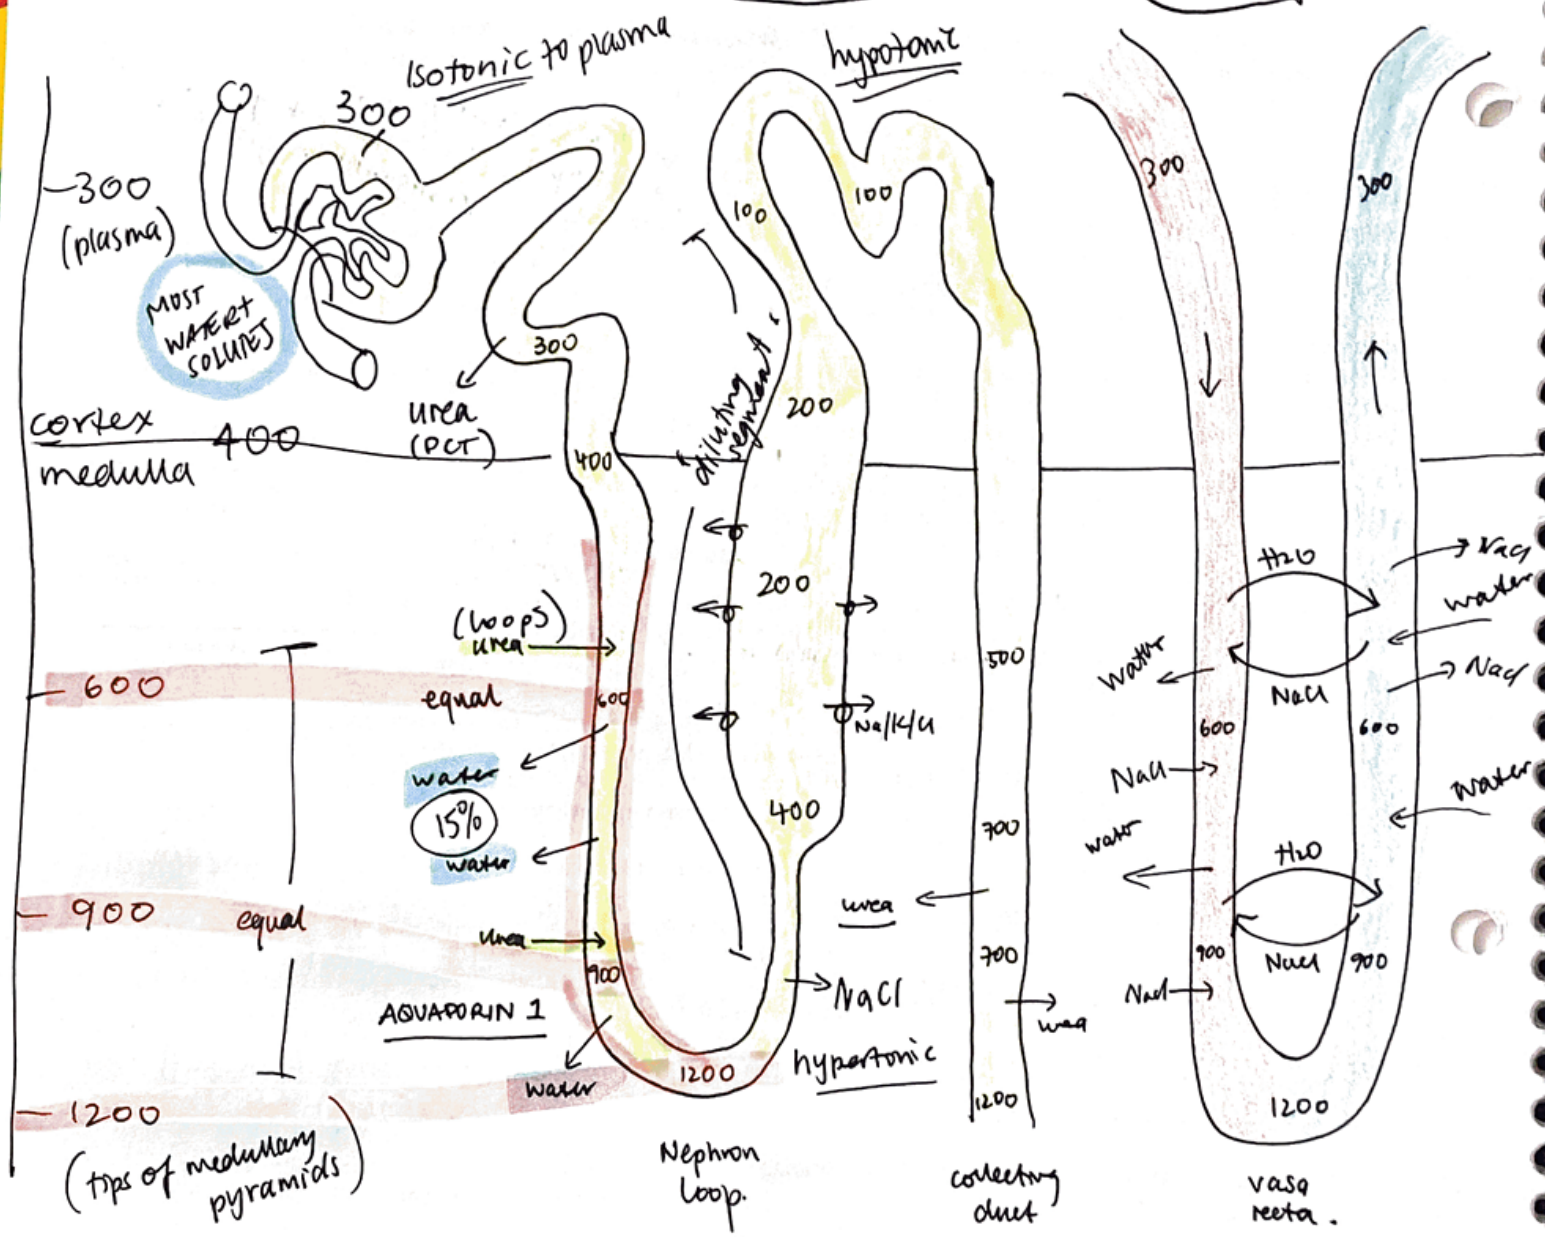 Isotonic to plasma
hypotonic
300
300
(plasma)
MOST
WATER +
SOLUTES
300
urea
(PCT)
cortex
400
medulla
400
100
100
"diluting
segment".
200
200
(loops)
urea
600
equal
600
water
15%
water
Na/K/Cl
400
900
equal
urea
900
AQUAPORIN 1
water
NaCl
hypertonic
1200
1200
(tips of medullary
pyramids)
Nephron
loop.
500
700
urea
700
urea
1200
collecting
duct
300
300
H2O
NaCl
water
NaCl
water
NaCl
600
600
NaCl
water
water
H2O
NaCl
900
900
NaCl
1200
vasa
recta.